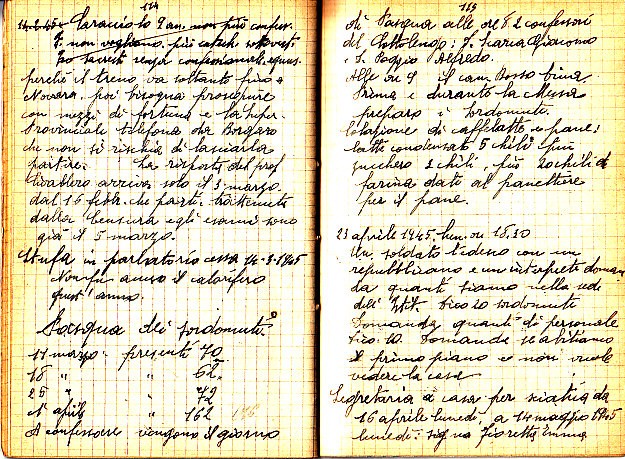 114
perchè il treno va soltanto fino a
Novara, poi bisogna proseguire
con mezzi di fortuna e la Super.
Provinciale telefona da Borgaro
che non si rischia di lasciarla
partire. La risposta del prof
arriva solo il 3 marzo
dal 16 febb. che partì. trattenuta
dalla Censura e gli esami sono
già il 5 marzo.
Stufa in parlatorio cessa 14-3-1945
Non fu acceso il calorifero
quest'anno.
Pasqua dei sordomuti
11 marzo presenti 70
18 " " 62
25 " " 72
1° aprile " 162
A confessare vengono il giorno
115
di Pasqua alle ore 8 2 confessori
del Cottolengo: S. Maria Giacomo
e S. Poggio Alfredo.
Alle ore 9 il can. Bosso bina
Prima e durante la Messa
preparo i sordomuti.
Colazione di caffelatte e pane:
latte condensato 5 chili più
zucchero 2 chili, più 20 chili di
farina dati al panettiere
per il pane.
23 aprile 1945, lun. ore 15.30
Un soldato tedesco con un
repubblicano e un interprete doman
da quanti siamo nella sede
dell'Istit. Dico 20 sordomuti
Domanda quanti di personale
Dico 10. Domanda se abitiamo
il primo piano e non vuole
vedere la casa
Segretaria a casa per sciatica da
16 aprile lunedì a 14 maggio 1945
lunedì: sig.na Fioretta Emma